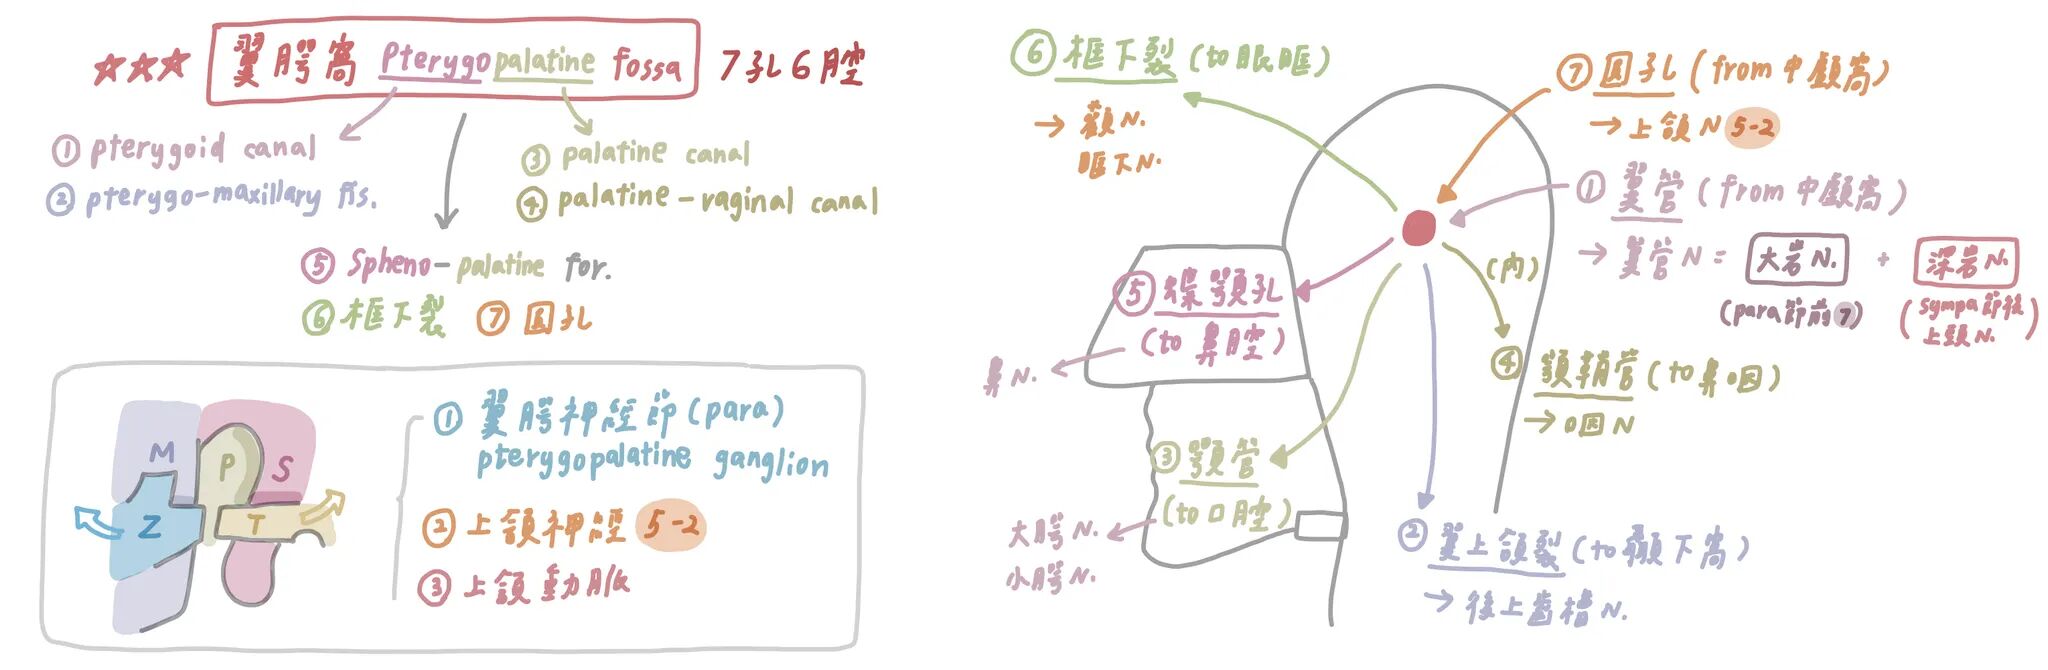 翼腭窩 Pterygopalatine fossa 7孔6腔
① pterygoid canal
② pterygo-maxillary fis.
③ palatine canal
④ palatine-vaginal canal
⑤ Spheno-palatine for.
⑥ 框下裂 ⑦ 圓孔
M P S
Z T
① 翼腭神經節(para)
pterygopalatine ganglion
② 上頜神經 5-2
③ 上頜動脈
⑥ 框下裂 (to 眼眶)
→ 顴N.
眶下N.
⑦ 圓孔 (from 中顱窩)
→ 上頜N 5-2
① 翼管 (from 中顱窩)
→ 翼管N = 大岩N. + 深岩N.
(para節前7)
(sympa節後
上頸N.)
(內)
⑤ 蝶顎孔
(to 鼻腔)
鼻N.
④ 顎鞘管 (to 鼻咽)
→ 咽N
③ 顎管
(to 口腔)
大腭N.
小腭N.
② 翼上頜裂 (to 顳下窩)
→ 後上齒槽N.